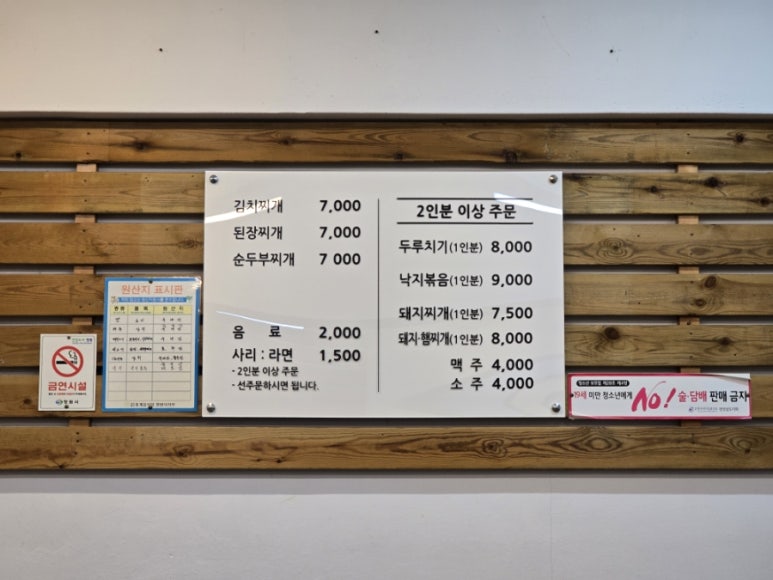 김치찌개 7,000
된장찌개 7,000
순두부찌개 7 000
음 료 2,000
사리 : 라면 1,500
- 2인분 이상 주문
- 선주문하시면 됩니다.
2인분 이상 주문
두루치기(1인분) 8,000
낙지볶음(1인분) 9,000
돼지찌개(1인분) 7,500
돼지·햄찌개(1인분) 8,000
맥 주 4,000
소 주 4,000
원산지 표시판
금연시설
창원시
19세 미만 청소년에게 NO! 술·담배 판매 금지